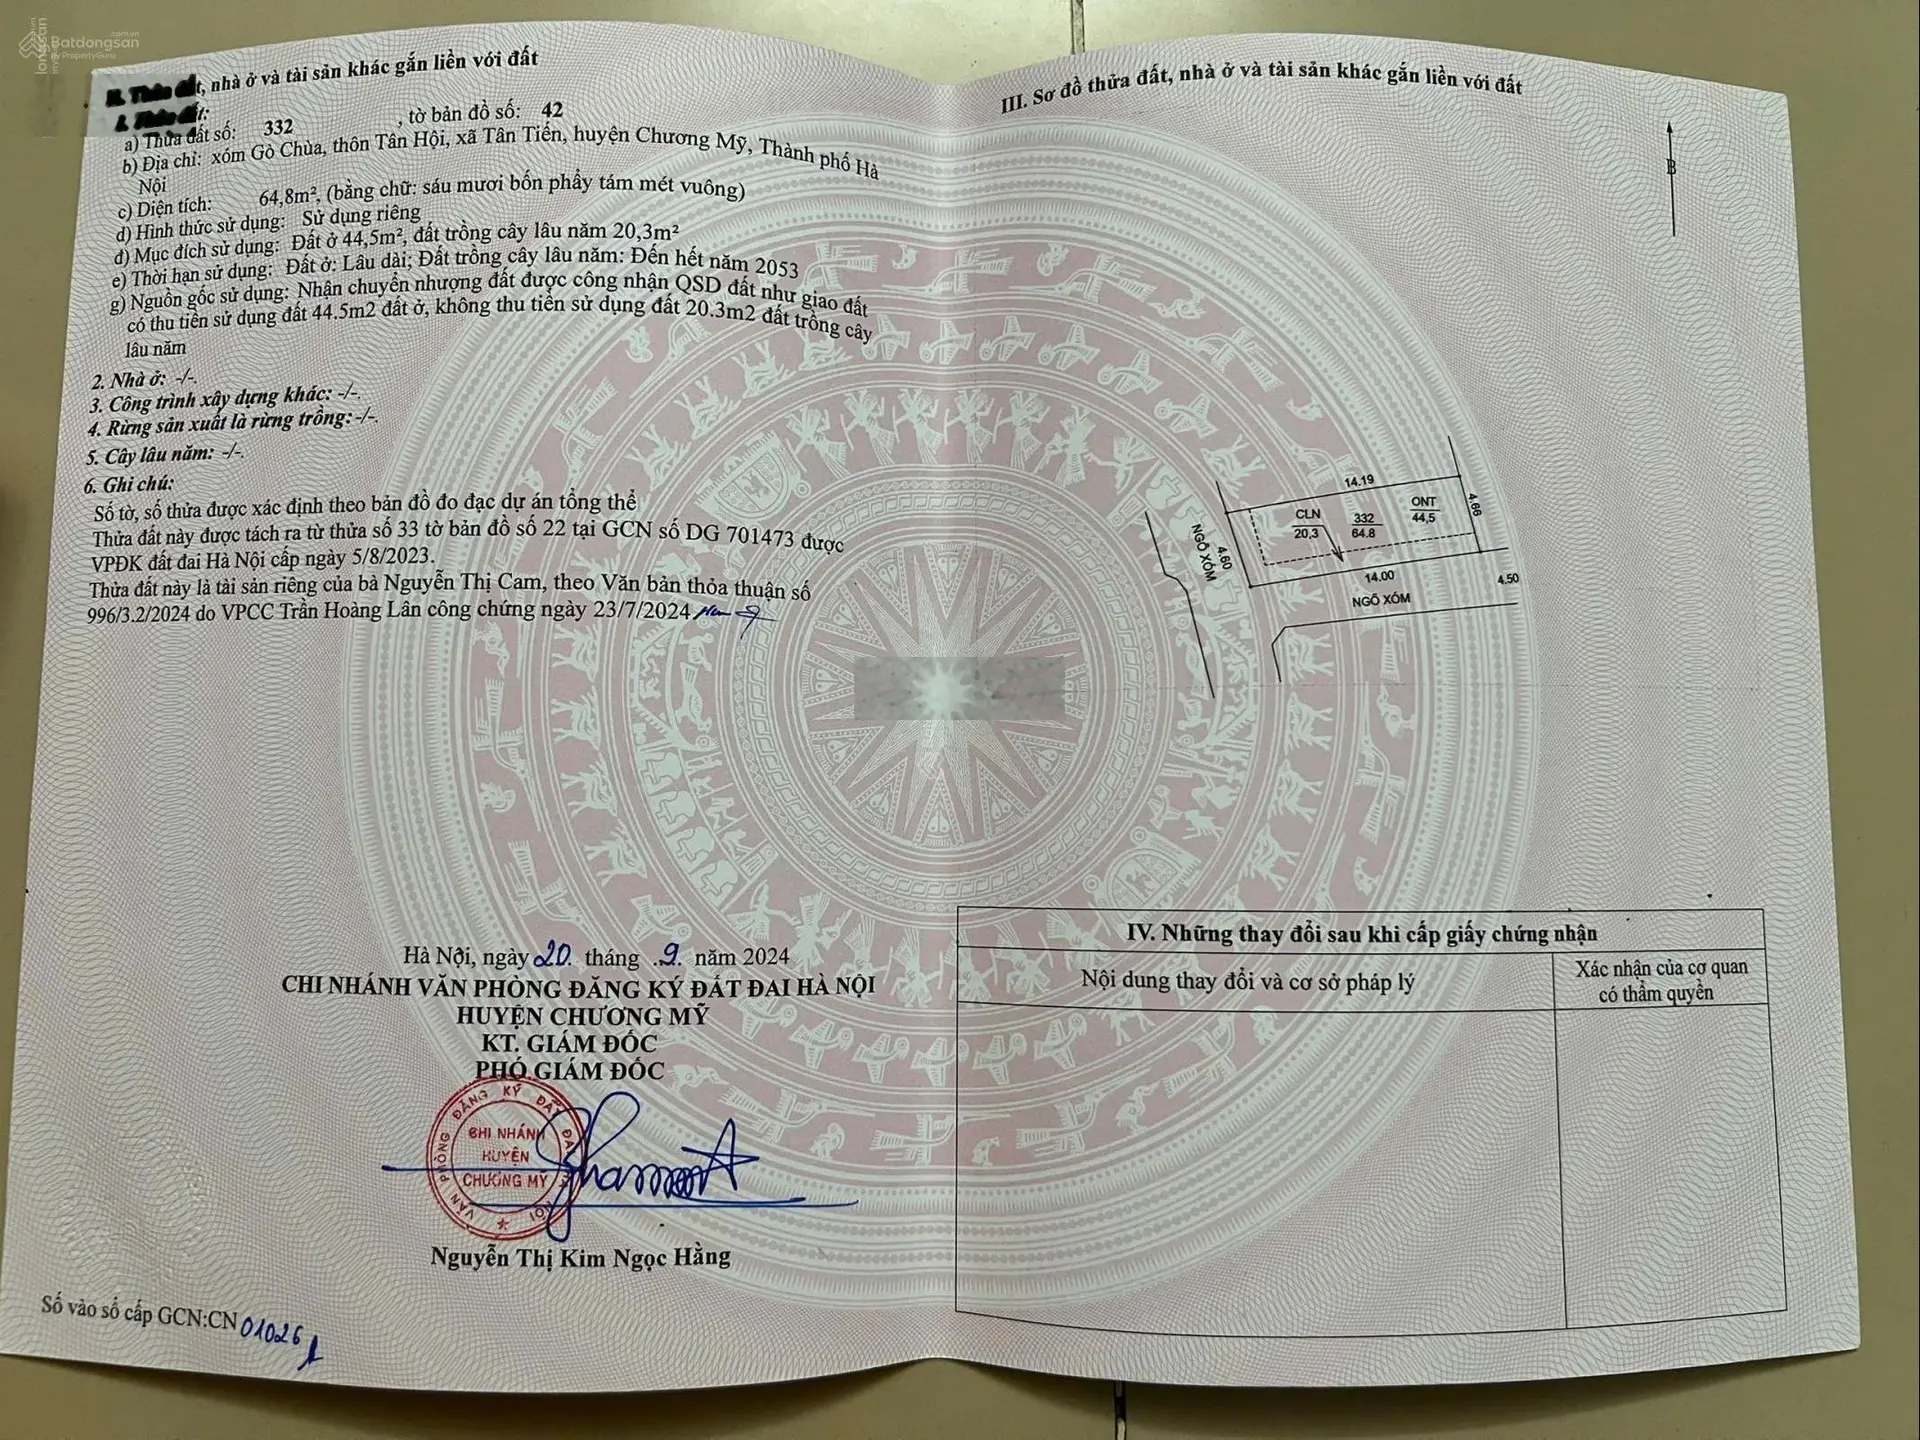 Batdongsan
.com.vn
by PropertyGuru
II. Thửa đất, nhà ở và tài sản khác gắn liền với đất
1. Thửa đất:
a) Thửa đất số: 332 , tờ bản đồ số: 42
b) Địa chỉ: xóm Gò Chùa, thôn Tân Hội, xã Tân Tiến, huyện Chương Mỹ, Thành phố Hà
Nội
c) Diện tích: 64,8m², (bằng chữ: sáu mươi bốn phẩy tám mét vuông)
d) Hình thức sử dụng: Sử dụng riêng
đ) Mục đích sử dụng: Đất ở 44,5m², đất trồng cây lâu năm 20,3m²
e) Thời hạn sử dụng: Đất ở: Lâu dài; Đất trồng cây lâu năm: Đến hết năm 2053
g) Nguồn gốc sử dụng: Nhận chuyển nhượng đất được công nhận QSD đất như giao đất
có thu tiền sử dụng đất 44.5m2 đất ở, không thu tiền sử dụng đất 20.3m2 đất trồng cây
lâu năm
2. Nhà ở: -/-.
3. Công trình xây dựng khác: -/-.
4. Rừng sản xuất là rừng trồng: -/-.
5. Cây lâu năm: -/-.
6. Ghi chú:
Số tờ, số thửa được xác định theo bản đồ đo đạc dự án tổng thể
Thửa đất này được tách ra từ thửa số 33 tờ bản đồ số 22 tại GCN số DG 701473 được
VPĐK đất đai Hà Nội cấp ngày 5/8/2023.
Thửa đất này là tài sản riêng của bà Nguyễn Thị Cam, theo Văn bản thỏa thuận số
996/3.2/2024 do VPCC Trần Hoàng Lân công chứng ngày 23/7/2024
Hà Nội, ngày 20. tháng .9. năm 2024
CHI NHÁNH VĂN PHÒNG ĐĂNG KÝ ĐẤT ĐAI HÀ NỘI
HUYỆN CHƯƠNG MỸ
KT. GIÁM ĐỐC
PHÓ GIÁM ĐỐC
VĂN PHÒNG ĐĂNG KÝ ĐẤT ĐAI HÀ NỘI
CHI NHÁNH
HUYỆN
CHƯƠNG MỸ
Nguyễn Thị Kim Ngọc Hằng
Số vào sổ cấp GCN:CN 01026
III. Sơ đồ thửa đất, nhà ở và tài sản khác gắn liền với đất
B
14.19
CLN
20,3
332
64.8
ONT
44,5
4.66
4.60
NGÕ XÓM
14.00
4.50
NGÕ XÓM
IV. Những thay đổi sau khi cấp giấy chứng nhận
Nội dung thay đổi và cơ sở pháp lý
Xác nhận của cơ quan
có thẩm quyền